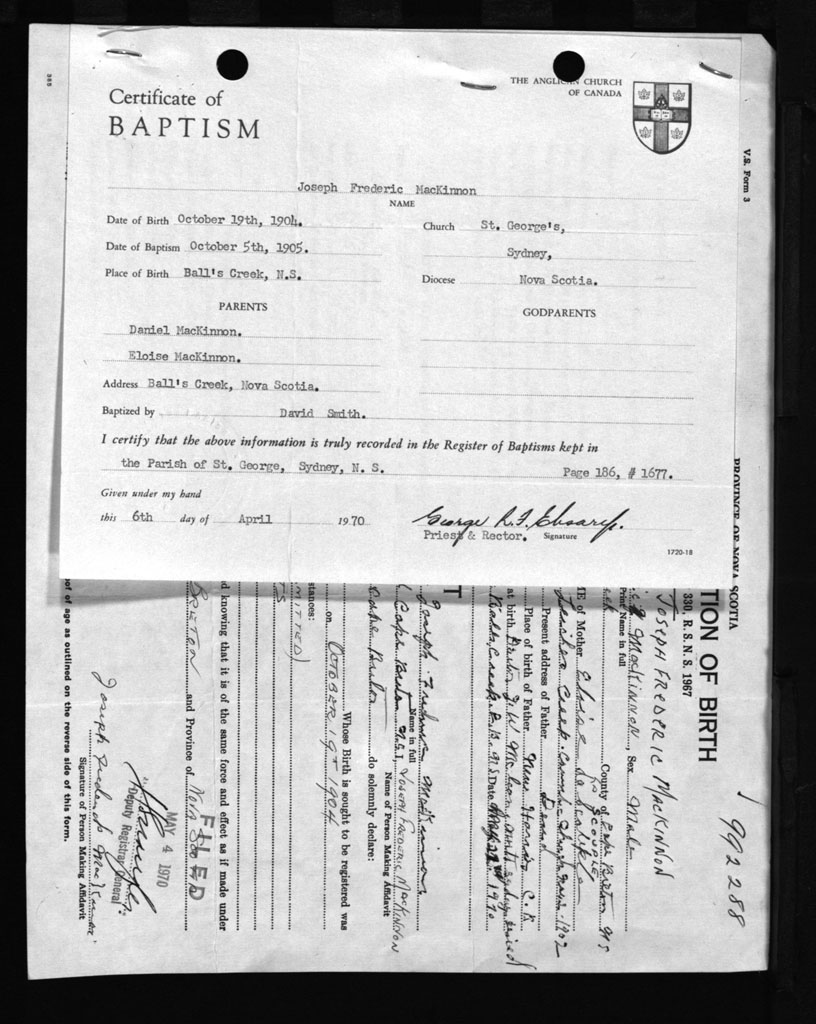 Certificate of
BAPTISM
THE ANGLICAN CHURCH
OF CANADA
385
V.S. Form 3
Joseph Frederic MacKinnon
NAME
Date of Birth October 19th, 1904.
Date of Baptism October 5th, 1905.
Place of Birth Ball's Creek, N.S.
Church St. George's,
Sydney,
Diocese Nova Scotia.
PARENTS
Daniel MacKinnon.
Eloise MacKinnon.
GODPARENTS
Address Ball's Creek, Nova Scotia.
Baptized by David Smith.
I certify that the above information is truly recorded in the Register of Baptisms kept in
the Parish of St. George, Sydney, N. S. Page 186, # 1677.
Given under my hand
this 6th day of April 1970
George R.F.
Priest & Rector. Signature
1720-18
992288
PROVINCE OF NOVA SCOTIA
TION OF BIRTH
330, R. S. N. S. 1967
JOSEPH FREDERIC MACKINNON
Print Name in full
MacKinnon, Sex Male
County of Cape Breton NS
E of Mother
Present address of Father
Place of birth of Father
at birth
Date 1970
T
Joseph Frederic MacKinnon
Name in full
Cape Breton N.S. I, JOSEPH FREDERIC MACKINNON
Name of Person Making Affidavit
Cape Breton do solemnly declare:
Whose Birth is sought to be registered was
on OCTOBER 19th 1904
stances:
MITTED)
TS
d knowing that it is of the same force and effect as if made under
BRETON and Province of NOVA SCOTIA
FILED
MAY 4 1970
Deputy Registrar General
Joseph Frederic MacKinnon
Signature of Person Making Affidavit
of of age as outlined on the reverse side of this form.